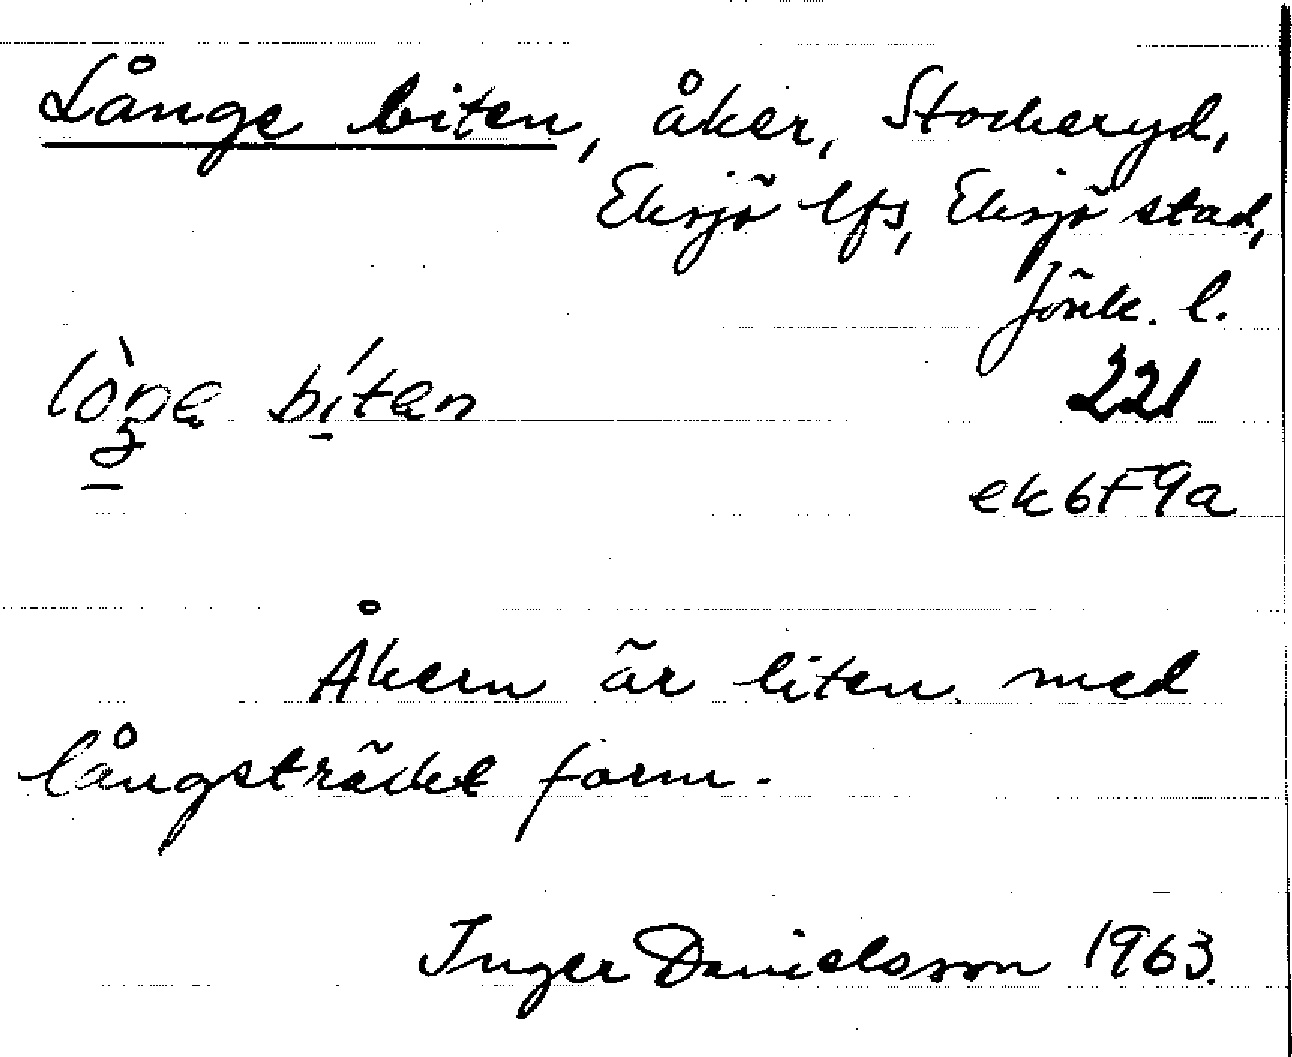 Långe biten, åker, Stockeryd,
Eksjö lfs, Eksjö stad,
Jönk. l.
lòŋa bítan
221
ek6F9a
Åkern är liten med
långsträckt form.
Inger Danielsson 1963.